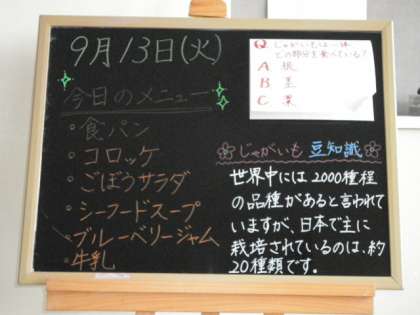 9月13日(火)
今日のメニュー
・食パン
・コロッケ
・ごぼうサラダ
・シーフードスープ
・ブルーベリージャム
・牛乳
Q. じゃがいもは一体
どの部分を食べている?
A 根
B 茎
C 葉
じゃがいも 豆知識
世界中には2000種程
の品種があると言われて
いますが、日本で主に
栽培されているのは、約
20種類です。